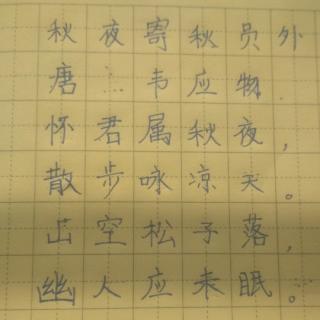 秋夜寄秋员外
唐…韦应物
怀君属秋夜，
散步咏凉天。
山空松子落，
幽人应未眠。